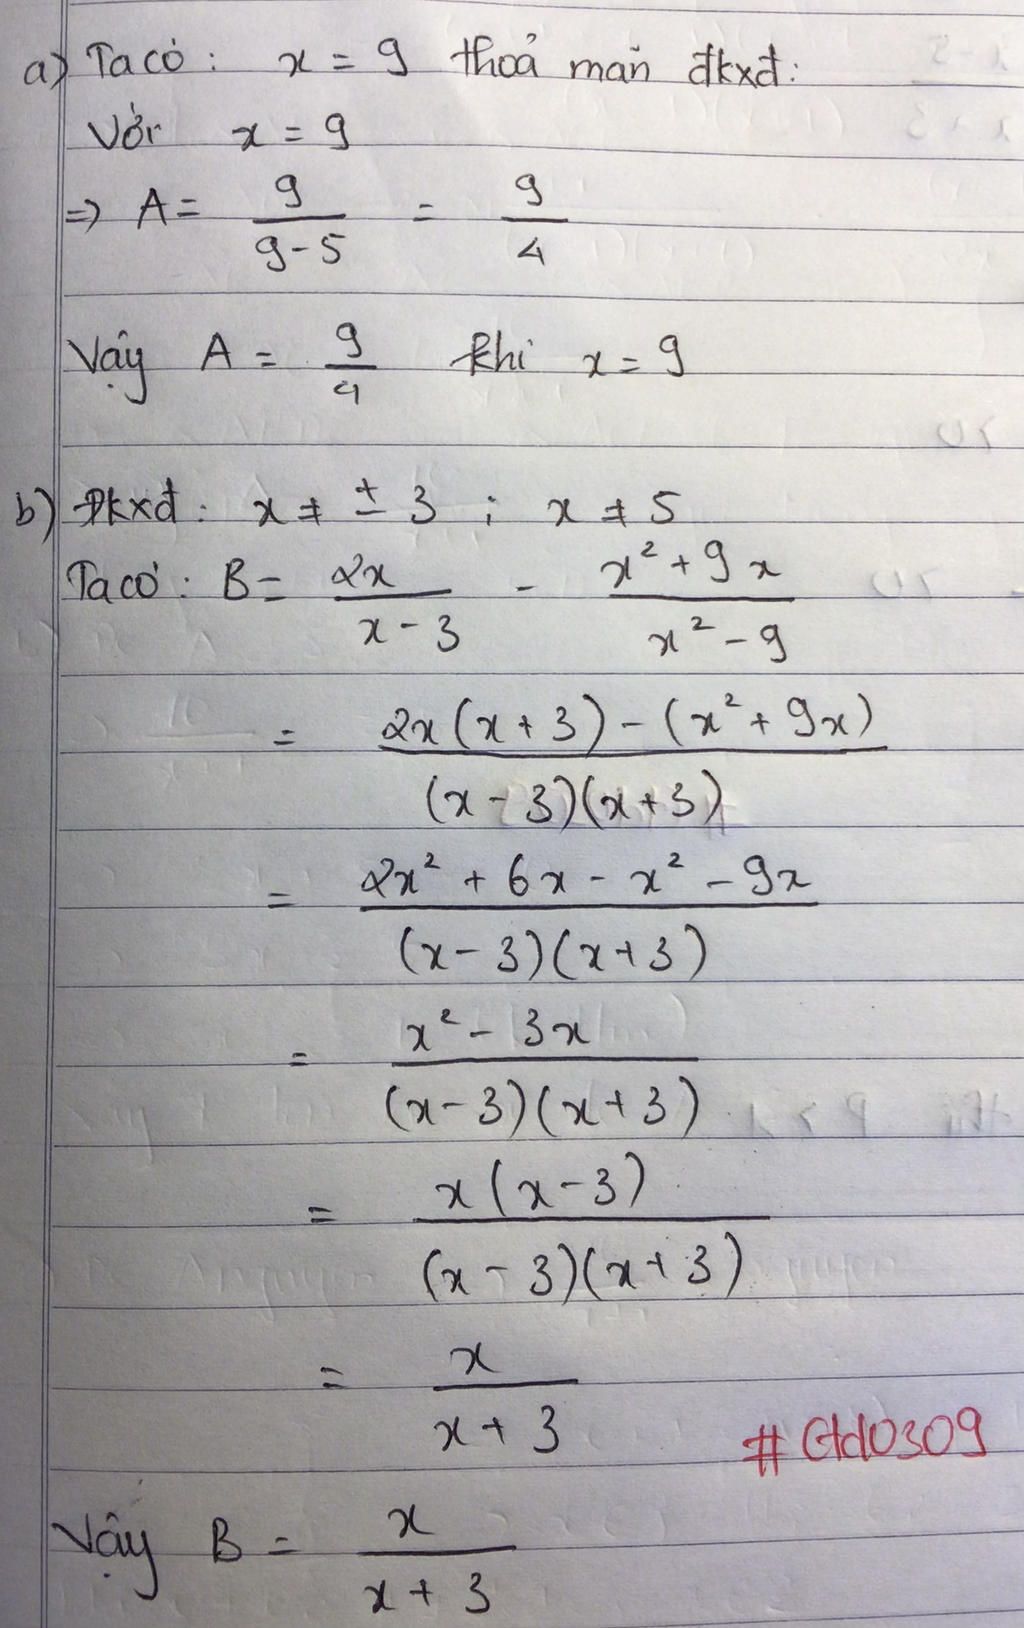 a) Ta có : x = 9 thoả mãn đkxđ:
Với x = 9
=> A = 9/(9 - 5) = 9/4
Vậy A = 9/4 khi x = 9
b) Đkxđ : x ≠ ± 3 ; x ≠ 5
Ta có : B = 2x/(x - 3) - (x² + 9x)/(x² - 9)
= (2x(x + 3) - (x² + 9x))/((x - 3)(x + 3))
= (2x² + 6x - x² - 9x)/((x - 3)(x + 3))
= (x² - 3x)/((x - 3)(x + 3))
= (x(x - 3))/((x - 3)(x + 3))
= x/(x + 3)
#Gtd0309
Vậy B = x/(x + 3)